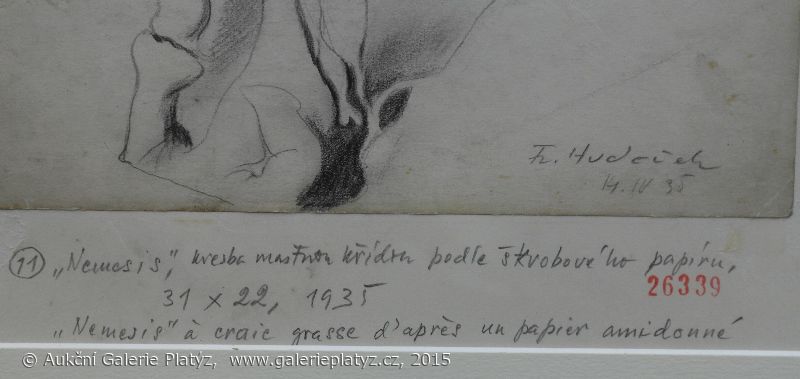 Fr. Hudeček
14. IV 35
11 „Nemesis", kresba mastnou křídou podle škrobového papíru,
26339
31 x 22, 1935
„Nemesis" à craie grasse d'après un papier amidonné
© Aukční Galerie Platýz, www.galerieplatyz.cz, 2015